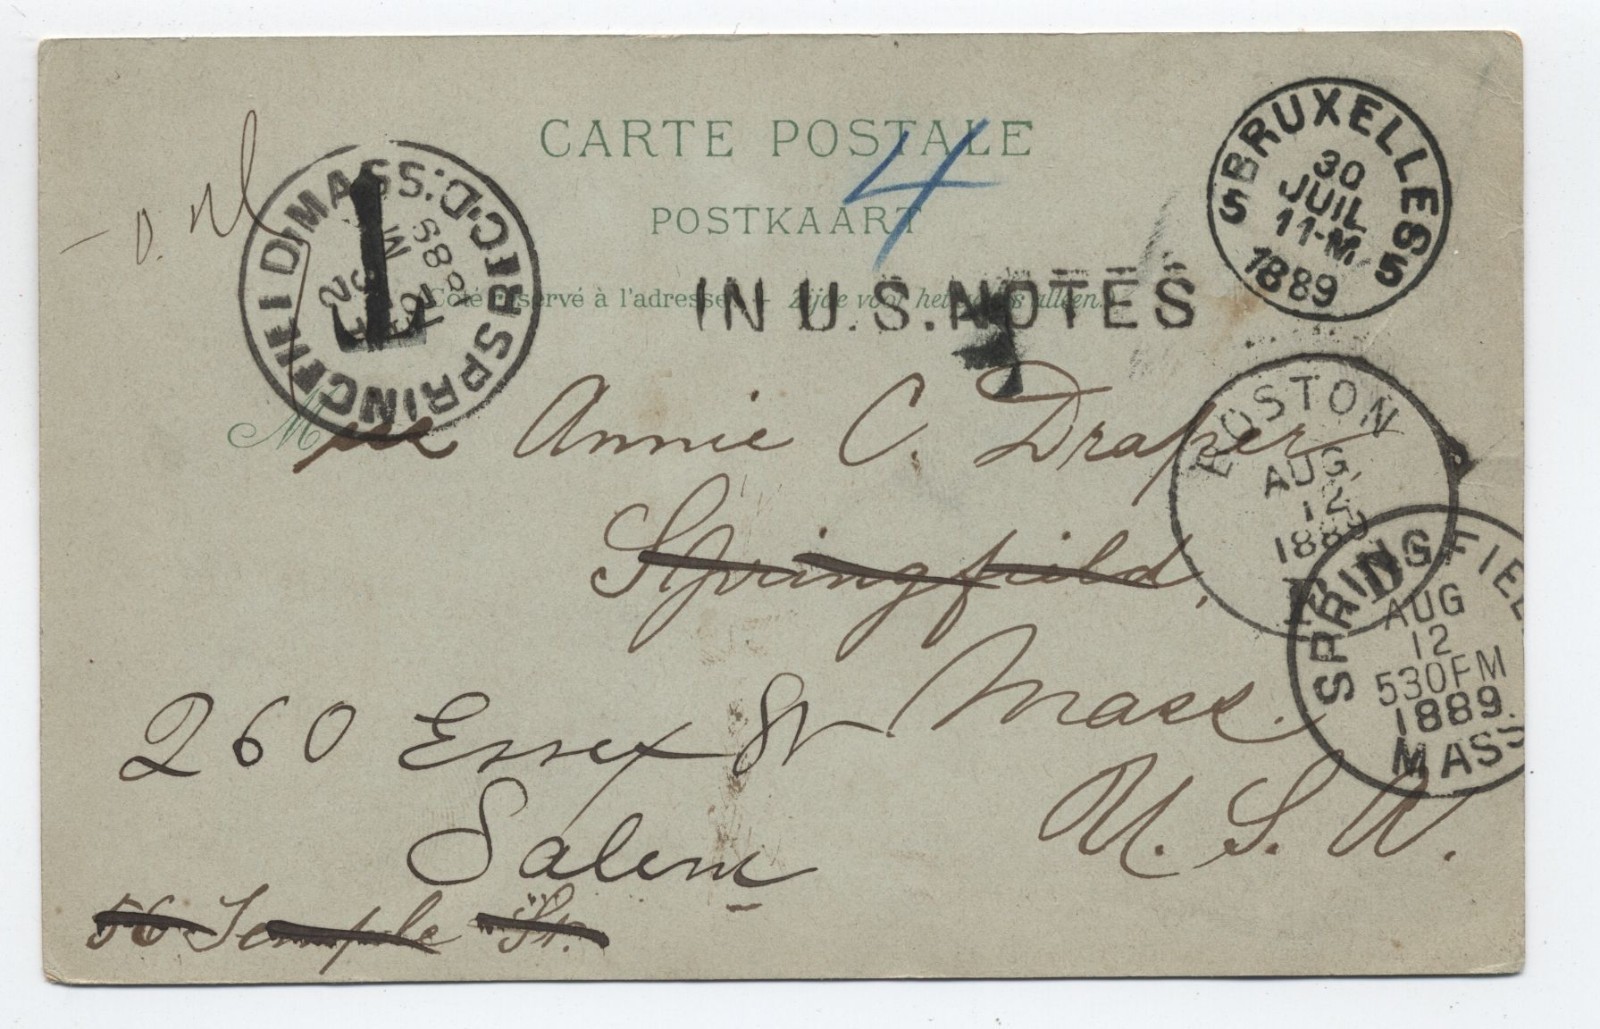 CARTE POSTALE
POSTKAART
4
Côté réservé à l'adresse. – Zijde voor het adres alleen.
IN U.S. NOTES
BRUXELLES
5 5
30
JUIL
11-M
1889
SPRINGFIELD MASS. REC'D.
1889
BOSTON
AUG
12
1889
SPRINGFIEL
AUG
12
530PM
1889.
MASS
M
Annie C. Draper
Springfield,
Mass.
U. S. A.
260 Essex St
Salem
56 Temple St.